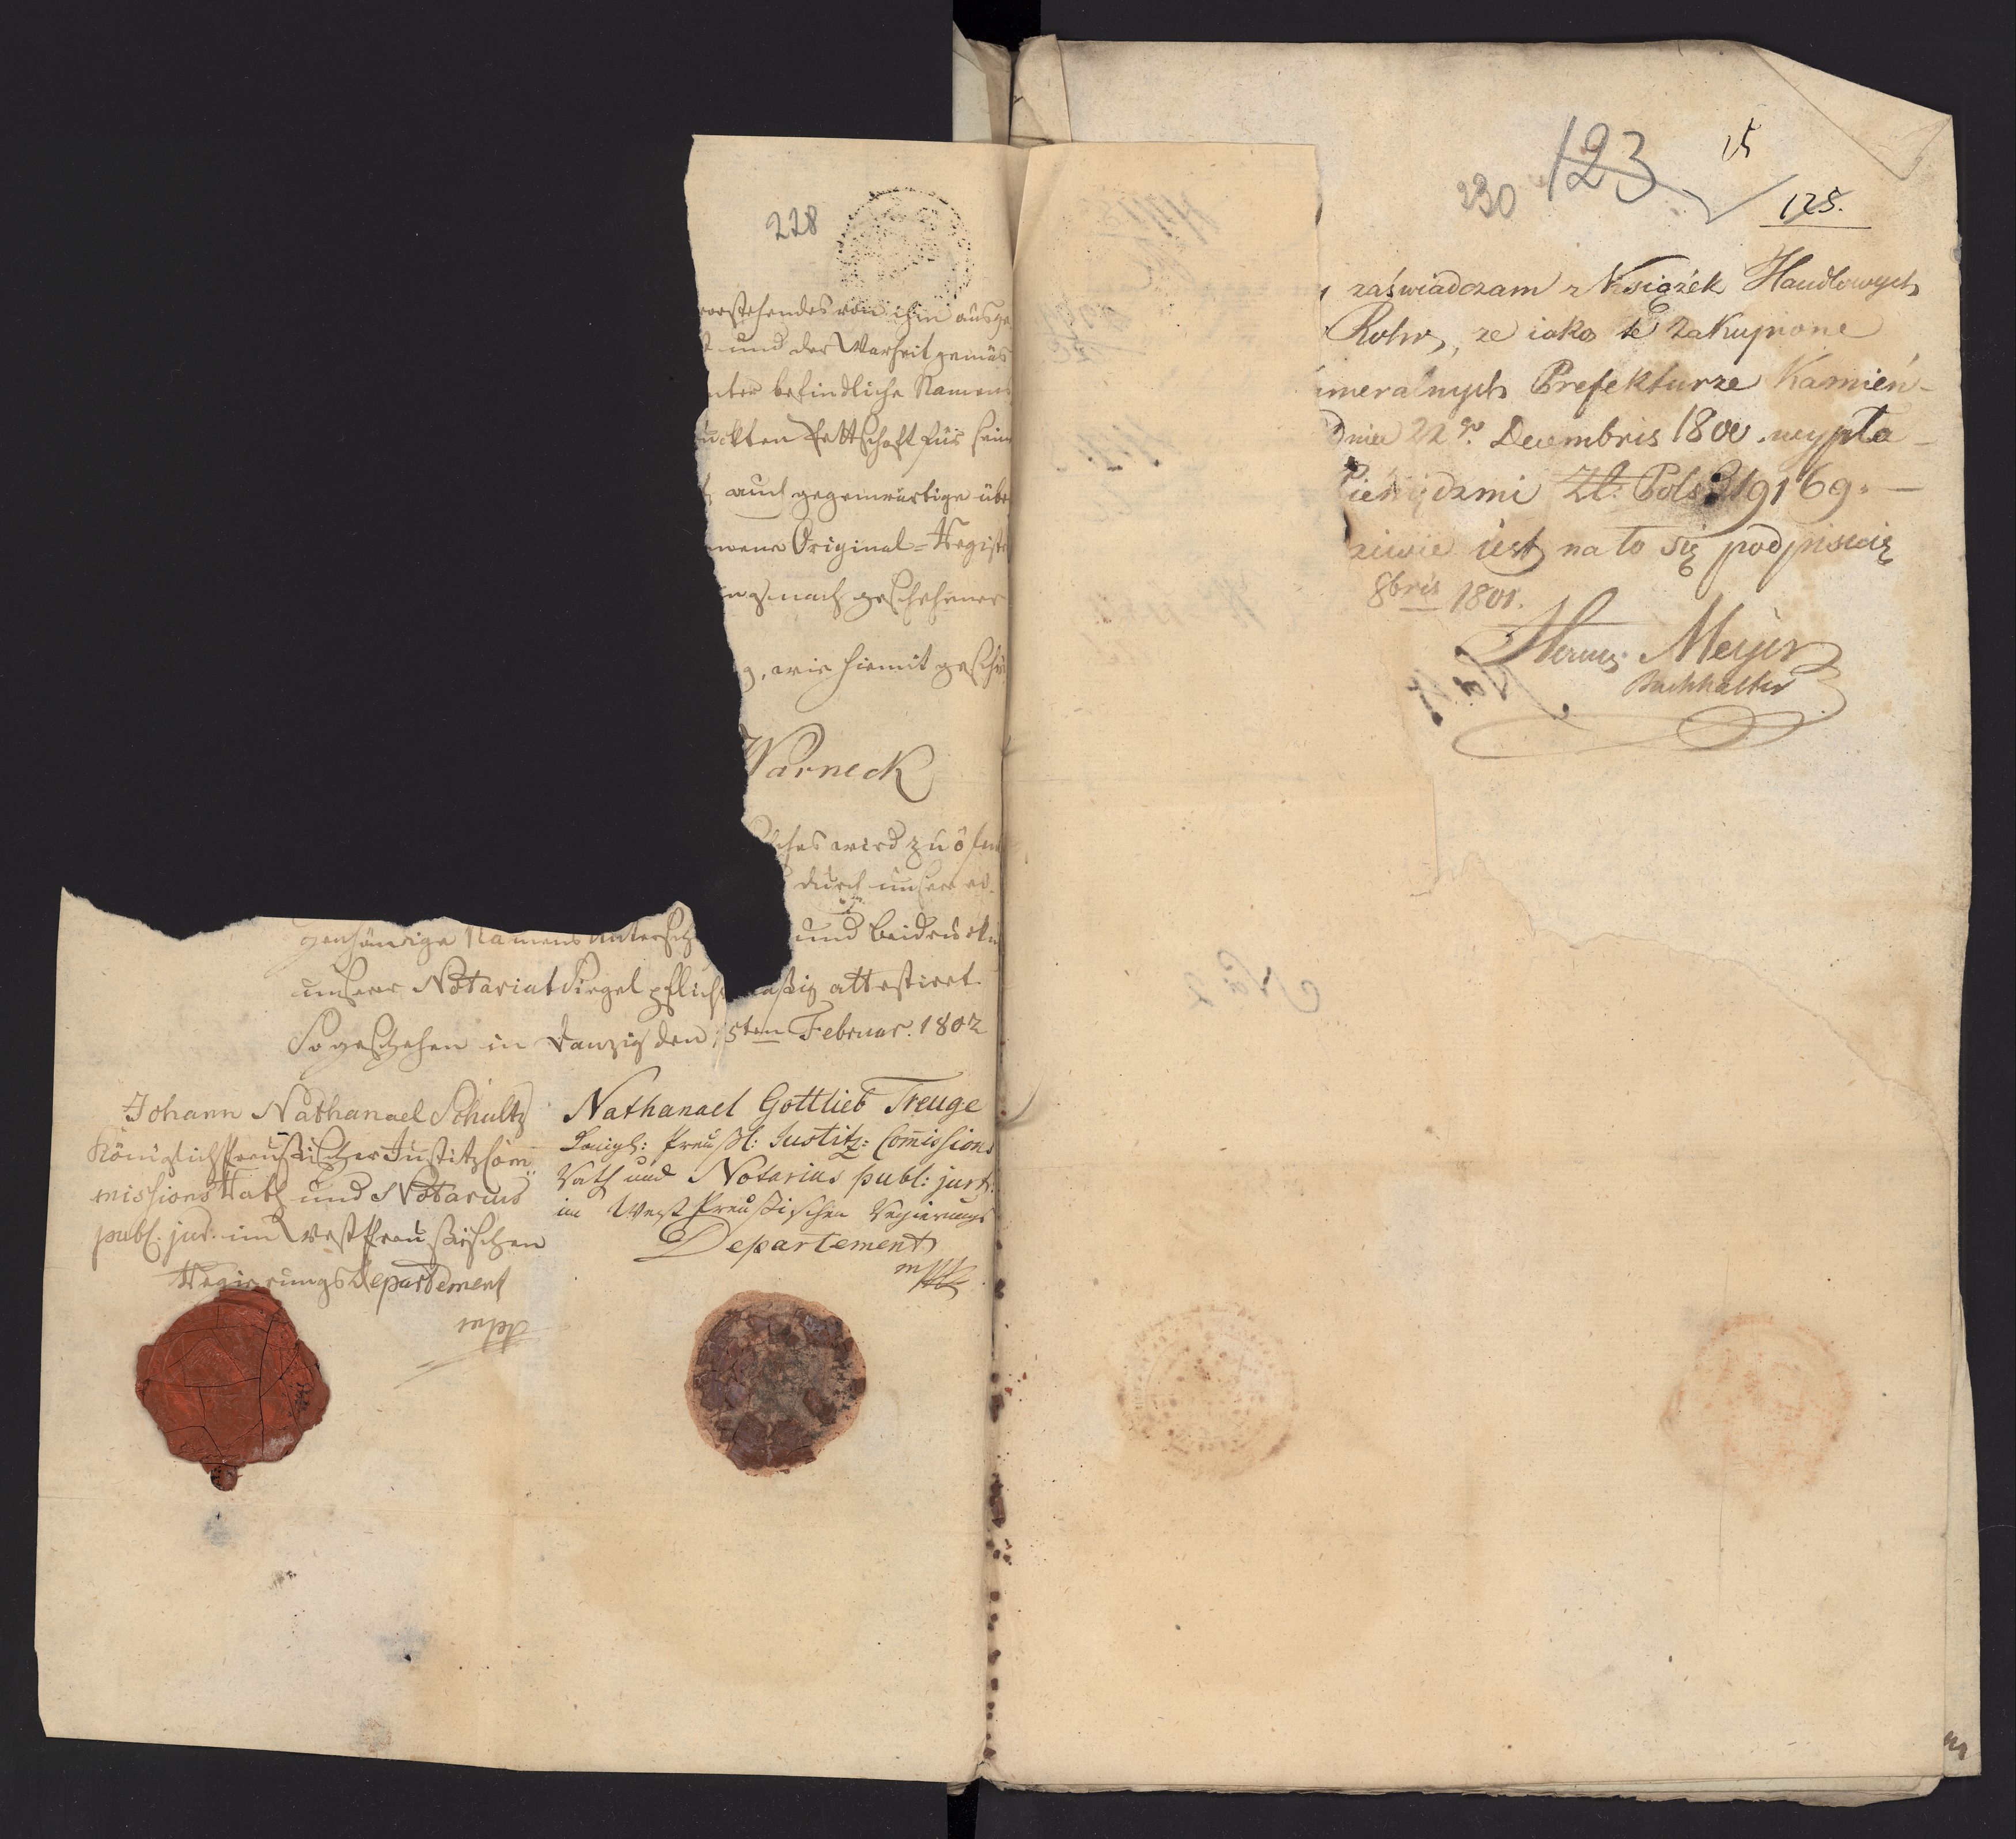 228
vorstehendes von ihm ausge
und der Warheit gemäs
unter befindliche Namens
druckten Pettschaft für sein
auch gegenwärtige über
Original-Regist
nach geschehener
wie hiemit gesche
Warneck
solches wird zu öffen
durch unsere ei-
genhändige Namens Untersch und Beidruckung
unserer Notariat Siegel pflichtmäßig attestiret.
So geschehen in Danzig den 5ten Februar. 1802
Johann Nathanael Schultz
Königlich Preußischer Justitz Com-
missions Rath und Notarius
publ. jur. im West Preußischen
Regierungs Departement
mpp
Nathanael Gottlieb Treuge
Königl: Preußl: Justitz: Com̅issions
Rath und Notarius publ: jur:
im West Preußischen Regierungs
Departement
mpp
230 123
125.
zaświadczam z Xsiążek Handlowych
Roku, ze iako te zakupione
meralnych Prefekturze Kamień-
Dnia 22go Decembris 1800 wypła-
Pieniędzmi Zł: Pols: 219169. —
ziwie iest na to się podpisuię
8bris 1801.
Meyer
Buchhalter
No 2